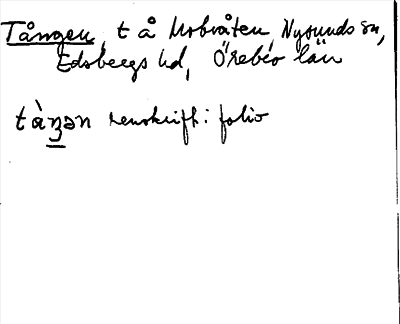 Tången, t å Mobråten, Nysunds sn,
Edsbergs hd, Örebro län
tàŋən renskrift i folio